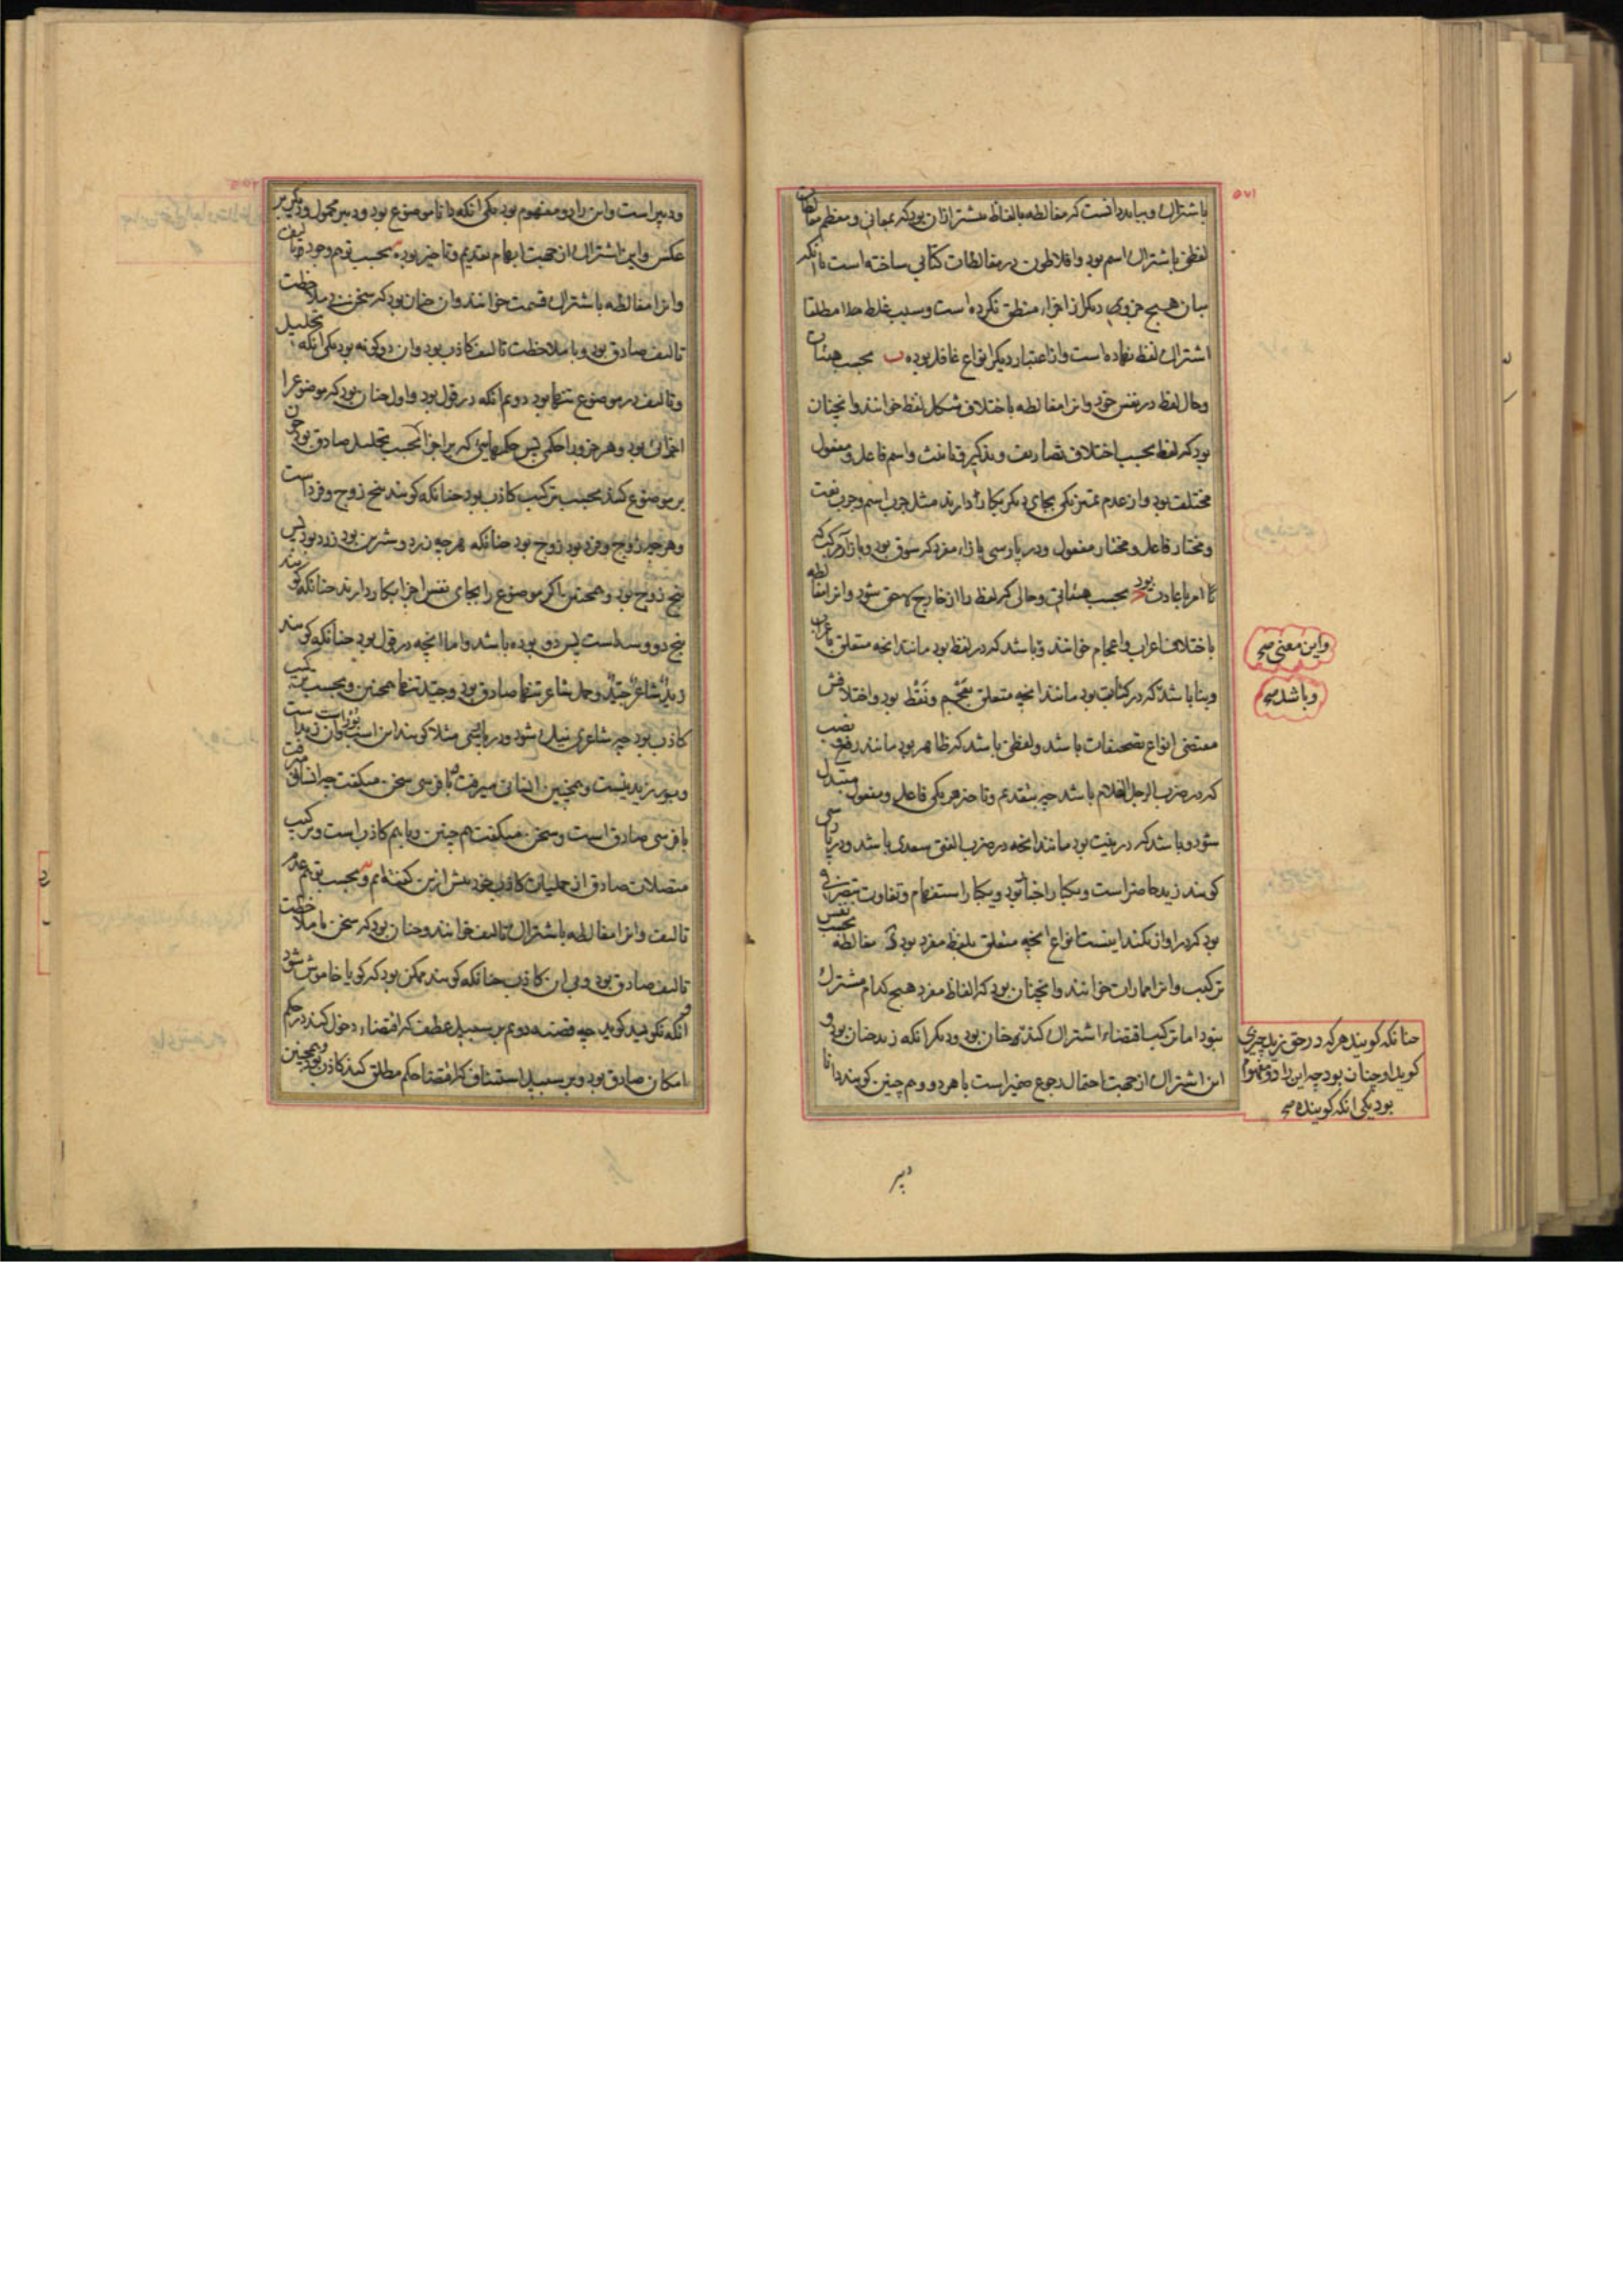 باشتراک و بباید دانست که مغالطه بالفاظ مشترک ازان بود که بمعانی و معظم مغالطات
لفظی باشتراک اسم بود و افلاطون در مغالطات کتابی ساخته است با آنکه
بیان هیچ جزوی دیگر از اجزاء منطق نکرده است و سبب غلط جدا مطلقا
اشتراک لفظ نهاده است و از اعتبار دیگر انواع غافل بوده ب بحسب هیئات
و حال لفظ در نفس خود و انرا مغالطه باختلاف شکل لفظ خوانند و انچنان
بود که لفظ بحسب اختلاف تصاریف و تذکیر و تانیث و اسم فاعل و مفعول
مختلف بود و از عدم تمیز یکی بجای دیگر بکار دارند
و مختار فاعل و مختار مفعول و در پارسی
بحسب هیئاتی و حالی که لفظ را از خارج لاحق شود و انرا مغالطه
باختلاف اعراب و اعجام خوانند و باشد که در لفظ بود مانند انچه متعلق باعراب
و بنا باشد که در کتابت بود مانند انچه متعلق بعجم و نقط بود و اختلافش
مقتضی انواع تصحیفات باشد و لفظی باشد که ظاهر بود مانند رفع و نصب
که در ضرب الرجل الغلام باشد چه بتقدیم و تاخیر هر یکی فاعل و مفعول متبدل
شود و باشد که در نیت بود مانند انچه در ضرب الفتی سعدی باشد و در پارسی
کویند زید حاضر است و یکبار اخبار بود و یکبار استفهام و تفاوت بتصرفی
بود که در اواز بکنند اینست انواع انچه متعلق بلفظ مفرد بود د مغالطه بحسب نفس
ترکیب و انرا ممارات خوانند و انچنان بود که الفاظ مفرد هیچ کدام مشترک
نبود اما ترکیب اقتضاء اشتراک کند
این اشتراک از جهت احتمال رجوع ضمیر است با هر دو و هم چنین کویند دانا
واین معنی صح
و باشد صح
چنانکه کویند هر که در حق زید چیزی
کوید او چنان بود چه این را دو مفهوم
بود یکی انکه کوینده صح
دبیر
دبیر است و این را دو مفهوم بود یکی انکه دانا موضوع بود و دبیر محمول و دیکر بر
عکس و این اشتراک از جهت ابهام تقدیم و تاخیر بود ه بحسب توهم وجود تالیف
و انرا مغالطه باشتراک قسمت خوانند و ان چنان بود که سخن بی ملاحظت
تالیف صادق بود و با ملاحظت تالیف کاذب بود و ان دو کونه بود یکی انکه تحلیل
و تالیف در موضوع تنها بود دوم انکه در قول بود و اول چنان بود که موضوع را
اجزائی بود و هر جزو را حکمی پس حکمهایی که بر اجزا بحسب تحلیل صادق بود چون
بر موضوع کنند بحسب ترکیب کاذب بود چنانکه کویند پنج زوج و فرد است
و هر چه زوج و فرد بود زوج بود چنانکه هر چه زرد و شیرین بود زرد بود پس
پنج زوج بود و همچنین اکر موضوع را بجای نفس اجزا بکار دارند چنانکه کویند
پنج دو و سه است پس دو بوده باشد و اما انچه در قول بود چنانکه کویند
زید شاعر جید و حمل شاعر تنها صادق بود و جید تنها همچنین و بحسب ترکیب
کاذب بود چه شاعری نیک نبود و در پارسی مثلا کویند این اسب
و پدر زید نیست و همچنین انسانی میرفت با فرسی سخن میکفت چه انسانی میرفت
با فرسی صادق است و سخن میکفت هم چنین و با هم کاذب است و ترکیب
متصلات صادق از حملیات کاذب خود پیش ازین کفته ایم و بحسب توهم عدم
تالیف و انرا مغالطه باشتراک تالیف خوانند و چنان بود که سخن با ملاحظت
تالیف صادق بود و بی ان کاذب چنانکه کویند ممکن بود که کویا خاموش شود
انکه نکوید کوید چه قضیه دوم بر سبیل عطف که اقتضاء دخول کند در حکم
امکان صادق بود و بر سبیل استیناف که اقتضا حکم مطلق کند کاذب بود و همچنین